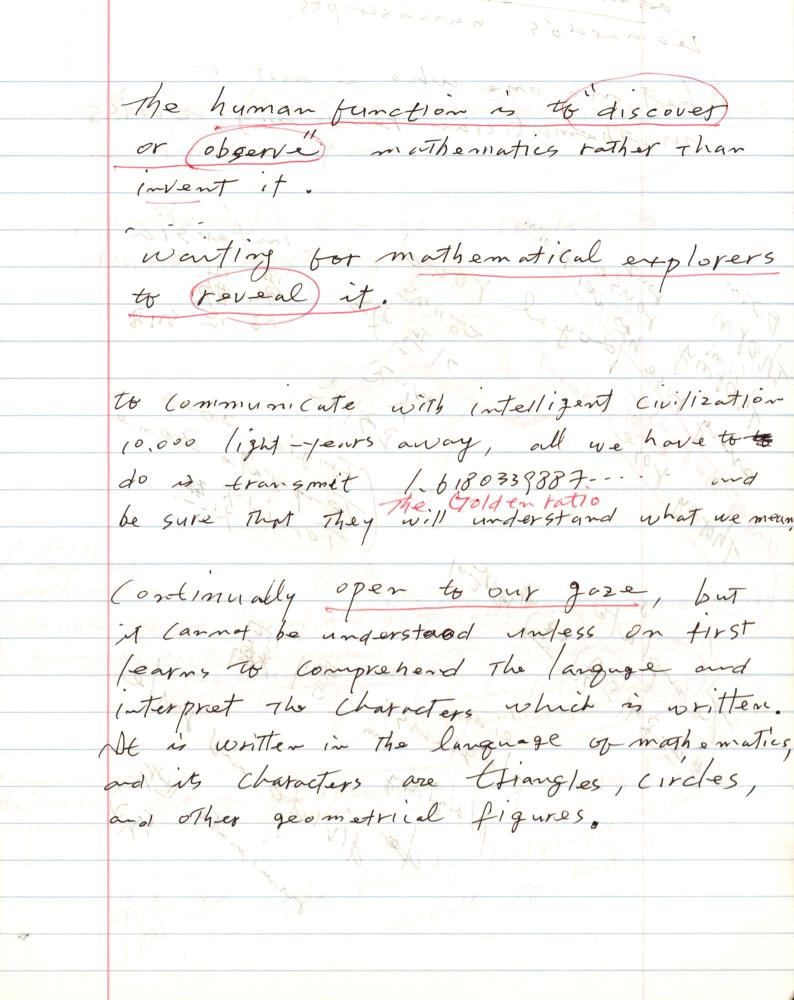 The human function is to "discover
or observe" mathematics rather than
invent it.
waiting for mathematical explorers
to reveal it.
to communicate with intelligent civilization
10.000 light-years away, all we have to
do is transmit 1.6180339887----- and
The Golden ratio
be sure that they will understand what we mean,
Continually open to our gaze, but
it cannot be understood unless on first
learns to comprehend the languge and
interpret the characters which is written.
It is written in the language of mathematics,
and its characters are triangles, circles,
and other geometrical figures.